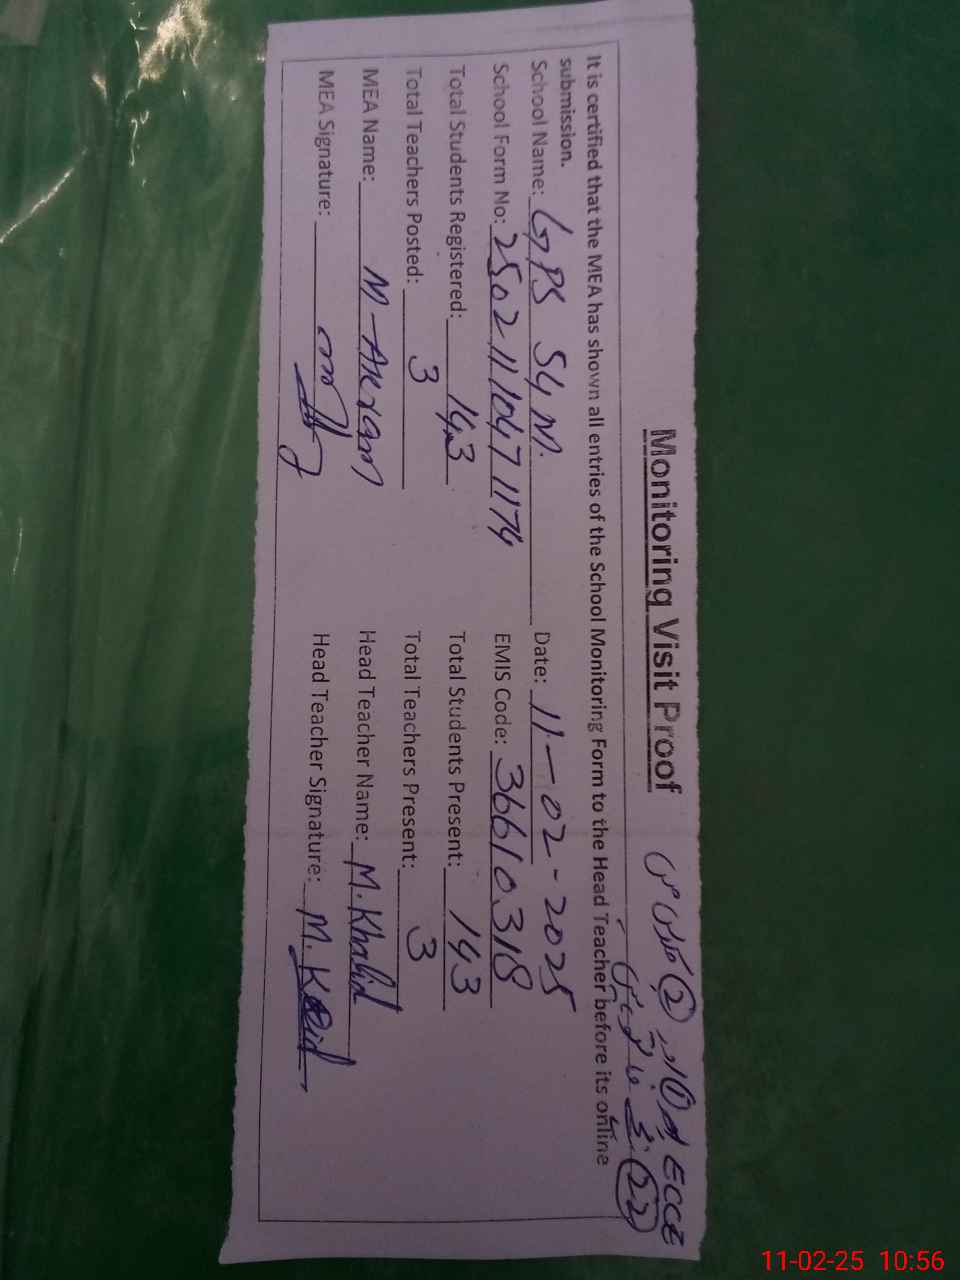 Monitoring Visit Proof
ECCE
22
It is certified that the MEA has shown all entries of the School Monitoring Form to the Head Teacher before its online
submission.
School Name: GPS 54 M. Date: 11-02-2025
School Form No: 25021110471174 EMIS Code: 36610318
Total Students Registered: 143 Total Students Present: 143
Total Teachers Posted: 3 Total Teachers Present: 3
MEA Name: M-Akram Head Teacher Name: M. Khalid
MEA Signature: Head Teacher Signature: M.
11-02-25 10:56